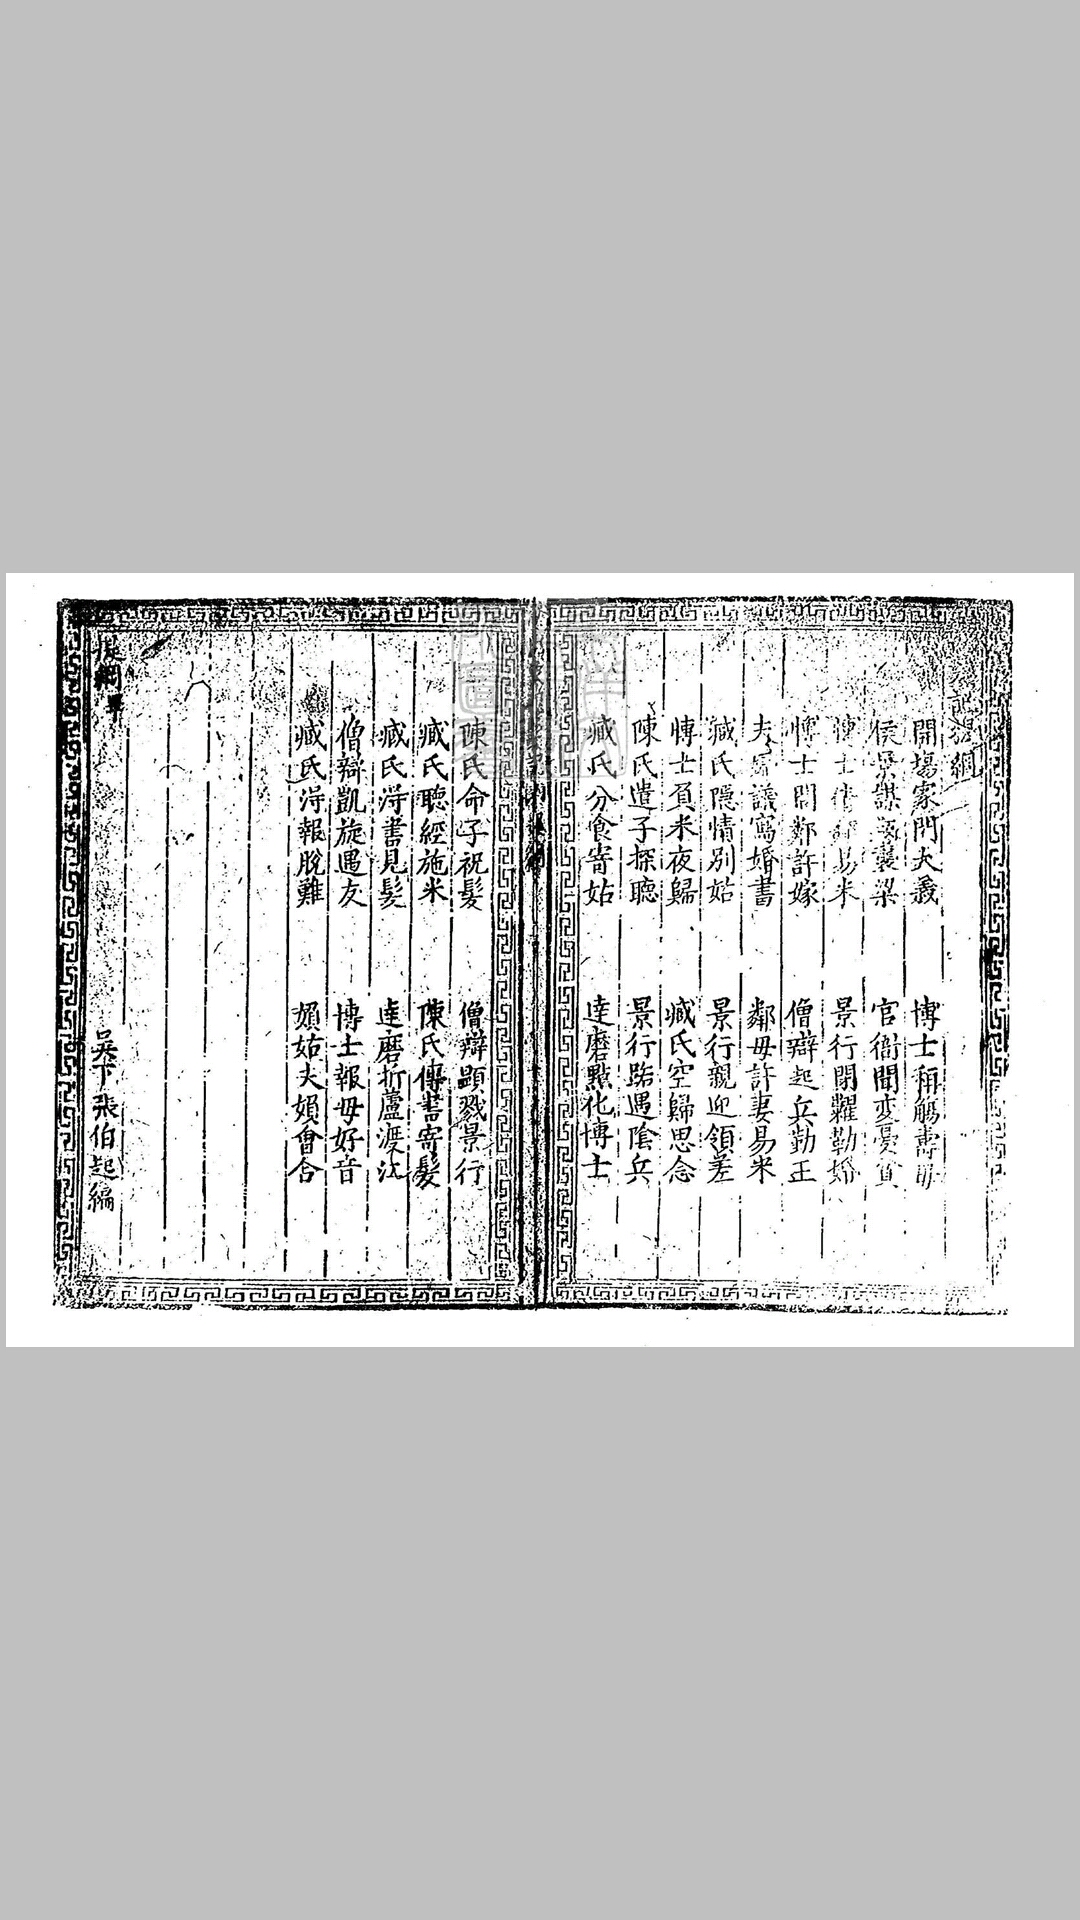 提綱
開場家門大義
博士稱觴壽母
侯景謀襲梁
官衙聞変憂貧
博士 易米
景行閉糶勒婚
博士閤鄰許嫁
僧辯起兵勤王
夫 議寫婚書
鄰母許妻易米
臧氏隱情別姑
景行親迎領差
博士負米夜歸
臧氏空歸思念
陳氏遣子探聽
景行路遇陰兵
臧氏分食寄姑
達磨點化博士
陳氏命子祝髮
僧辯顕戮景行
臧氏聽經施米
陳氏傳書寄髮
臧氏淂書見髮
達磨折蘆渡江
僧辯凱旋遇友
博士報母好音
臧氏淂報脫難
嫺姑夫嫺會合
提綱畢
吳下張伯起編